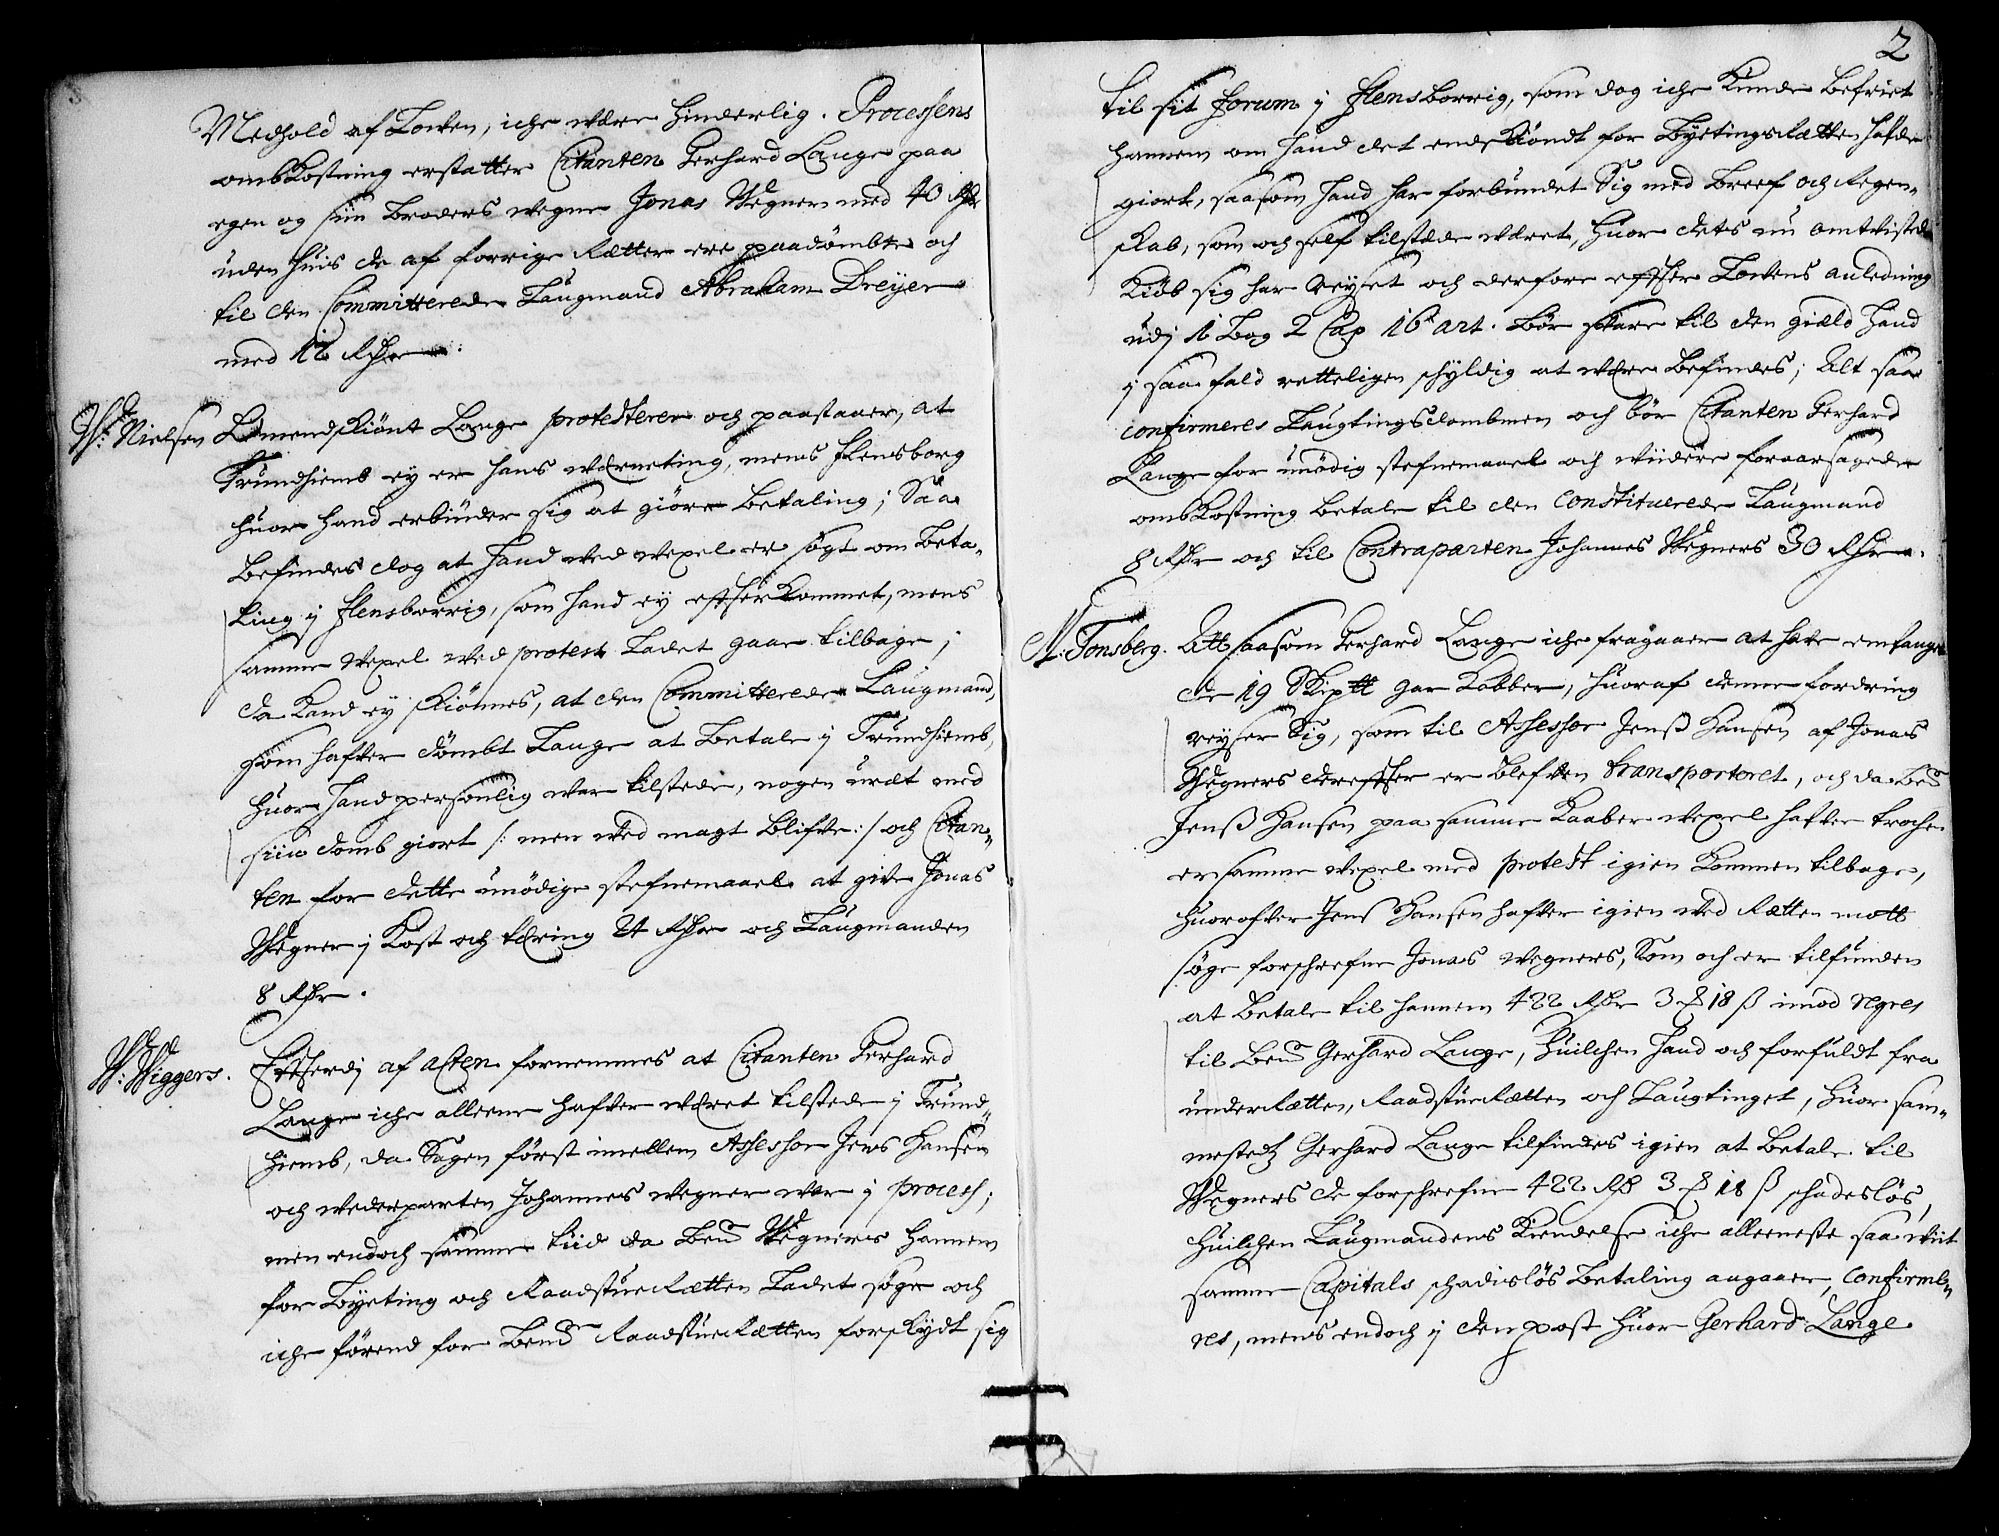 Medhold af Lowen, iche være hinderlig. Processens
ombkostning erstatter Citanten Gerhard Lange paa
egen og siin Broders vegne Jonas Wegner med 40 Rdr
uden huis de af forrige Rætter ere paadömbte och
til den Committerede Laugmand Abraham Dreyer
med 12 Rdr
W: Nielsen Endskiönt Lange protesterer och paastaaer, at
Trundhiemb ey er hans værneting, mens Flensborg
huor hand erbinder sig at giöre betaling; Saa
befindes dog at hand ved vexel er sögt om beta-
ling j Flensborrig, som hand ey effterkommet, mens
samme vexel med protest ladet gaae tilbage;
da kand ey skiönnes, at den Committerede Laugmand,
som hafver dömbt Lange at betale j Trundhiemb,
huor hand personlig var tilstede, nogen uræt med
siin domb giort /: men ved magt blifve :/ och Citan-
ten for dette unödige stefnemaael at give Jonas
Wegner j Kost och tæring 24 Rdr och Laugmanden
8 Rdr.
W: Wiggers. Efftterdj af acten fornemmes at Citanten Gerhard
Lange iche alleene hafver været tilstede j Trund-
hiemb, da Sagen först imellem Assessor Jens Hansen
och vederparten Johannes Wegner var j process;
men endoch samme tiid da bemte Wegners hannem
for Byeting och Raadstue Rætten ladet söge och
iche förend for bemte Raadstue Rætten forskydt sig
2
til sit forum j Flensborrig, som dog iche kunde befriet
hannem om hand det endskiöndt for Byetings Rætten hafde
giort, saasom hand har forbundet sig med breef och Regen-
skab, som och self tilstæde været, huor dets nu omtvistede
Kiöb sig har reyset och derfore effter Lowens anledning
udj 1 bog 2 Cap 16 art. bör svare til den giæld hand
j saa fald retteligen skyldig at være befindes; Alt saa
confirmeres Laugtingsdombmen och bör Citanten Gerhard
Lange for unödig stefnemaael och viidere foraarsagede
ombkostning betale til den constituerede Laugmand
8 Rdr och til Contraparten Johannes Wegners 30 Rdr.
N. Tonsberg. Att saasom Gerhard Lange iche fragaaer at have emfanget
de 19 Skiptt gar Kobber, huoraf denne fordring
reyser sig, som til Assessor Jenß Hansen af Jonas
Wegners dereffter er blefven transporteret, och da bemte
Jenß Hansen paa samme Kaaber vexel hafver troche
er samme vexel med protest igien kommen tilbage,
huorofver Jens Hansen hafver igien ved Rætten mott
söge forschrefne Jonas Wegners, som och er tilfunden
at betale til hannem 422 Rdr 3 18 ß imod regres
til bemte Gerhard Lange, huilchen hand och forfuldt fra
under Rætten, Raadstue Rætten och Laugtinget, huor sam-
mestedz Gerhard Lange tilfindes igien at betale til
Wegners de forschrefne 422 Rdr 3 18 ß schadeslös,
huilchen Laugmandens Kiendelse iche alleeneste saa viit
samme Capitals schadislös betaling angaaer, confirme-
res, mens endoch j den post huor Gerhard Lange